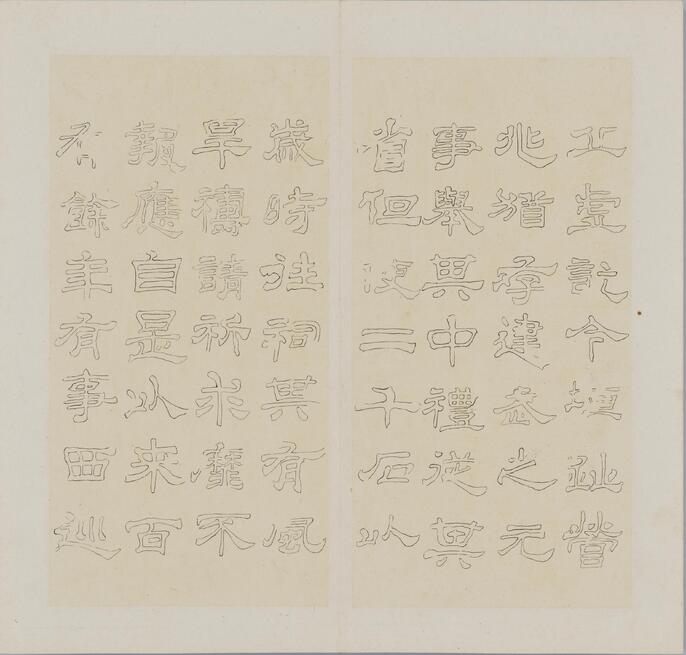 丘虛訖今垣趾營
兆猶存建武之元
事舉其中禮從其
省但使二千石以
歲時往祠其有風
旱禱請祈求靡不
報應自是以來百
有餘年有事西巡